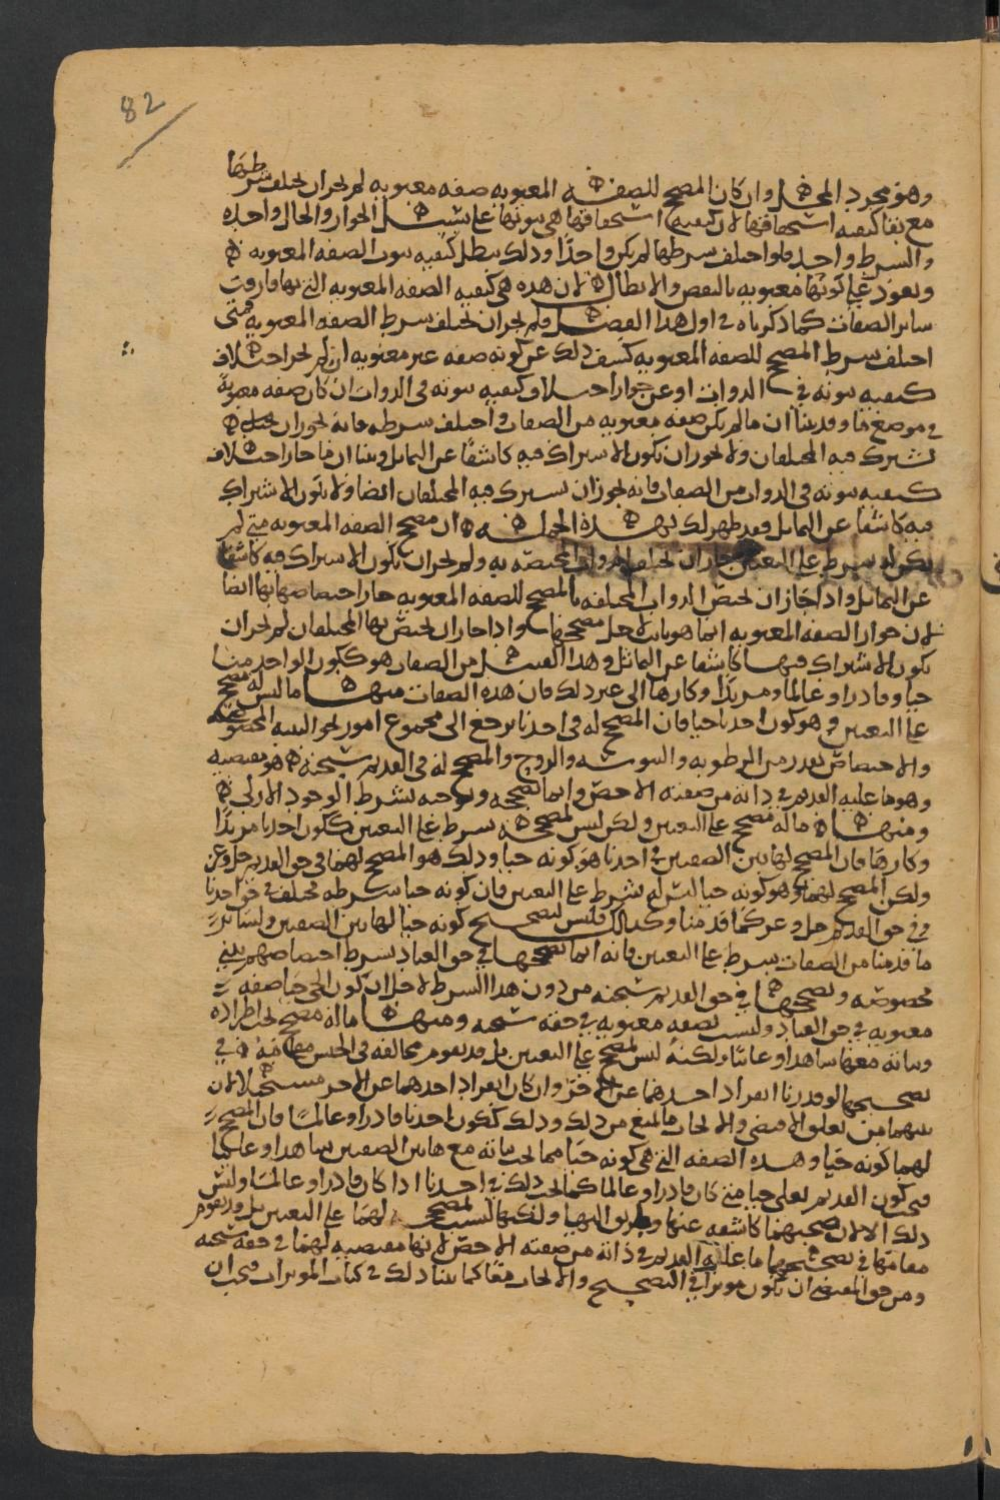 82
وهو مجرد المحل وان كان المصحح للصفة المعنوية صفة معنوية لم يجز ان يختلف شرطها
مع بقا كيفية استحقاقها لان كيفية استحقاقها هي ثبوتها على سبيل الجواز والحال واحدة
والشرط واحد فلو اختلف شرطها لم يكن واحدا وذلك يبطل كيفية ثبوت الصفة المعنوية
ويعود على كونها معنوية بالنقض والابطال لان هذه هي كيفية الصفة المعنوية التي بها فارقت
ساير الصفات كما ذكرناه في اول هذا الفصل فلم يجز ان يختلف شرط الصفة المعنوية فمتى
اختلف شرط المصحح للصفة المعنوية كشف ذلك عن كونه صفة غير معنوية اذ لم يجز اختلاف
كيفية ثبوته في الذوات او عن جواز اختلاف كيفية ثبوته في الذوات ان كان صفة معنوية
في موضع ما وقد بينا ان ما لم يكن صفة معنوية من الصفات واختلف شرطه فانه يجوز ان
يشترك فيه المختلفان ولا يجوز ان يكون الاشتراك فيه كاشفا عن التماثل وبينا ان ما جاز اختلاف
كيفية ثبوته في الذوات من الصفات فانه يجوز ان يشترك فيه المختلفان ايضا ولا يكون الاشتراك
فيه كاشفا عن التماثل فقد ظهر لك بهذه الجملة ان مصحح الصفة المعنوية متى لم
يكن له شرط على التعيين جاز ان تختلف الذوات المختصة به ولم يجز ان يكون الاشتراك فيه كاشفا
عن التماثل واذا جاز ان تختص الذوات المختلفة بالمصحح للصفة المعنوية جاز اختصاصها بها ايضا
لان جواز الصفة المعنوية انما هو ثابت لاجل مصححها واذا جاز ان يختص بها المختلفان لم يجز ان
يكون الاشتراك فيها كاشفا عن التماثل وهذا القبيل من الصفات هو ككون الواحد منا
حيا وقادرا وعالما ومريدا وكارها الى غير ذلك فان هذه الصفات منها ما ليس له مصحح
على التعيين وهو كون احدنا حيا فان المصحح له في احدنا يرجع الى مجموع امور نحو البنية المخصوصة
والاختصاص بقدر من الرطوبة واليبوسة والروح والمصحح له في القديم سبحنه هو مقتضيه
وهو ما عليه القديم في ذاته من صفته الاخص وانما تصححه وتوجبه بشرط الوجود الازلي
ومنها ما له مصحح على التعيين ولكن ليس لمصححه شرط على التعيين ككون احدنا مريدا
وكارها فان المصحح لهاتين الصفتين في احدنا هو كونه حيا وذلك هو المصحح لهما في حق القديم جل وعز
ولكن المصحح لهما وهو كونه حيا ليس له شرط على التعيين فان كونه حيا شرطه مختلف في حق احدنا
وفي حق القديم جل وعز كما قدمنا وكذلك فليس لتصحيح كونه حيا لهاتين الصفتين ولساير
ما قدمنا من الصفات شرط على التعيين فانه انما تصححها في حق العباد بشرط اختصاصهم ببنية
مخصوصة وتصححها في حق القديم سبحنه من دون هذا الشرط لاجل ان كون الحي حيا صفة
معنوية في حق العباد وليست بصفة معنوية في حقه سبحنه ومنها ما له مصحح يجب اطراده
وثباته معها شاهدا وغائبا ولكنه ليس بمصحح على التعيين بل قد يقوم مخالفه في الجنس مقامه في
تصحيحها لو قدرنا انفراد احدهما عن الاخر وان كان انفراد احدهما عن الاخر مستحيلا لان
بينهما من تعلق الاقتضى والايجاب ما يمنع من ذلك وذلك ككون احدنا قادرا وعالما فان المصحح
لهما كونه حيا وهذه الصفة التي هي كونه حيا مما يجب ثباته مع هاتين الصفتين شاهدا وغائبا
فيجب كون القديم تعلى حيا متى كان قادرا وعالما كما يجب ذلك في احدنا اذا كان قادرا وعالما وليس
ذلك الا لان صحتهما كاشفة عنها وطريق اليها ولكنها ليست بمصحح لهما على التعيين بل قد يقوم
مقامها في تصحيحهما ما عليه القديم في ذاته من صفته الاخص لانها مقتضية لهما في حقه سبحنه
ومن حق المقتضي ان يكون موثرا في التصحيح والايجاب معا كما بينا ذلك في كتاب الموثرات فيجب ان